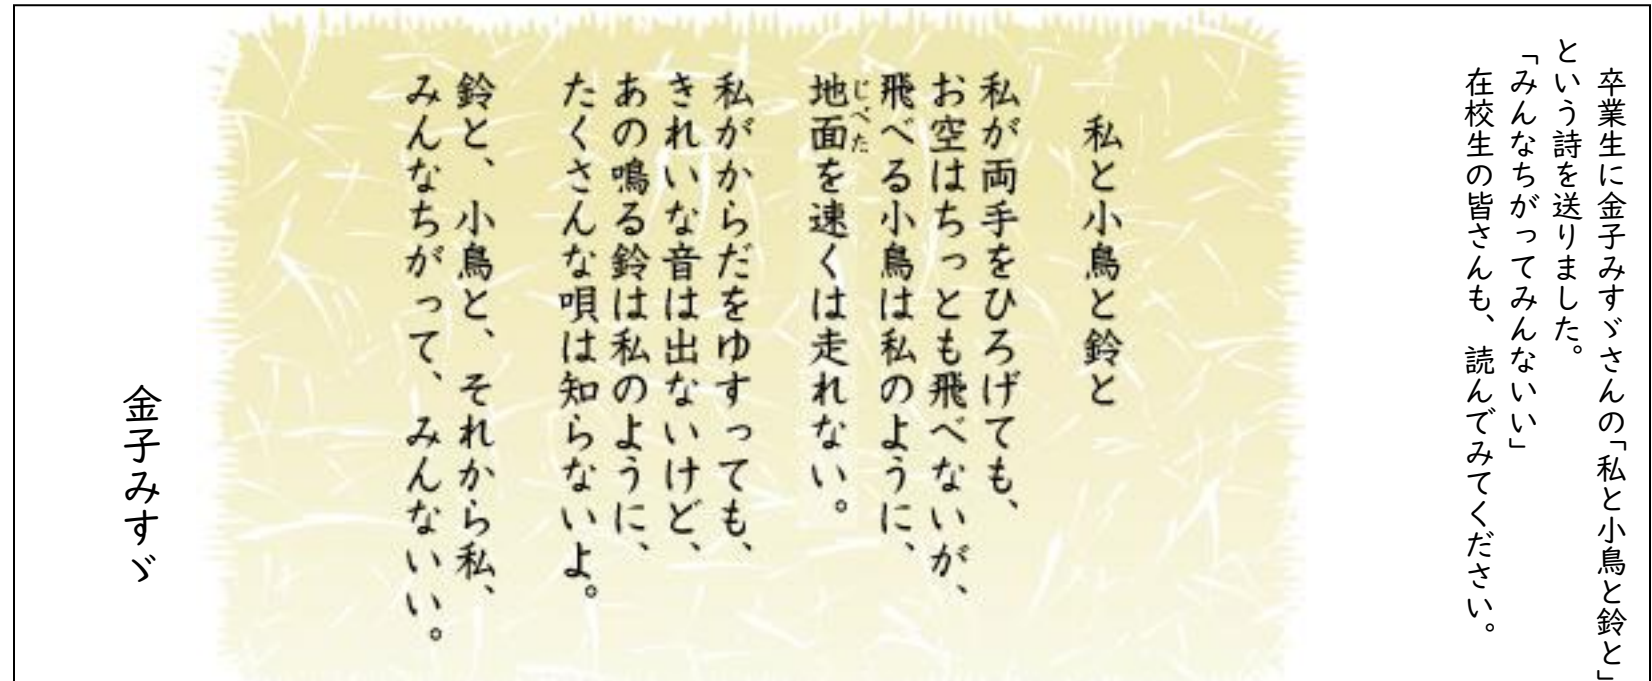 卒業生に金子みすゞさんの「私と小鳥と鈴と」
という詩を送りました。
「みんなちがってみんないい」
在校生の皆さんも、読んでみてください。
私と小鳥と鈴と
私が両手をひろげても、
お空はちっとも飛べないが、
飛べる小鳥は私のように、
地面を速くは走れない。
じべた
私がからだをゆすっても、
きれいな音は出ないけど、
あの鳴る鈴は私のように、
たくさんな唄は知らないよ。
鈴と、小鳥と、それから私、
みんなちがって、みんないい。
金子みすゞ